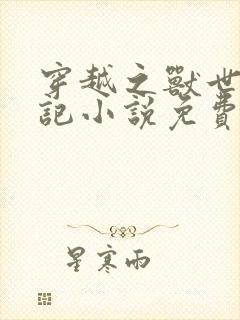 穿越之獸世
記小說免費
星寒雨